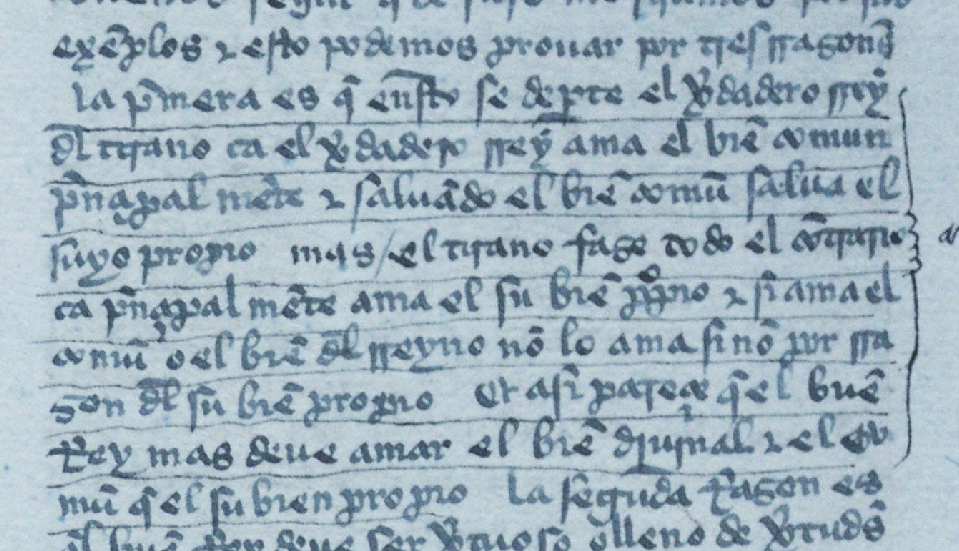 exẽplos ⁊ esto podemos prouar por tres rragonẽs
la pͥmera es q̃ en esto se deꝑte el v̾dadero rrey
dl̃ tirano ca el v̾dadero rrey ama el biẽ comun
pͥnçipal mẽte ⁊ saluãdo el biẽ comũ salua el
suyo propio mas / el tirano faze todo el cõtrario
ca pͥnçipal mẽte ama el su biẽ ꝓpio ⁊ si ama el
comũ o el biẽ dl̃ rreyno nõ lo ama sinõ por rra
zon dl̃ su biẽ propio Et asi pareçe q̃ el buẽ
Rey mas deue amar el biẽ diuinal ⁊ el co
mũ q̃ el su bien propio la segũda Razon es
q̃l buẽ Rey deue ser v̾tuoso ⁊ lleno de v̾tudes